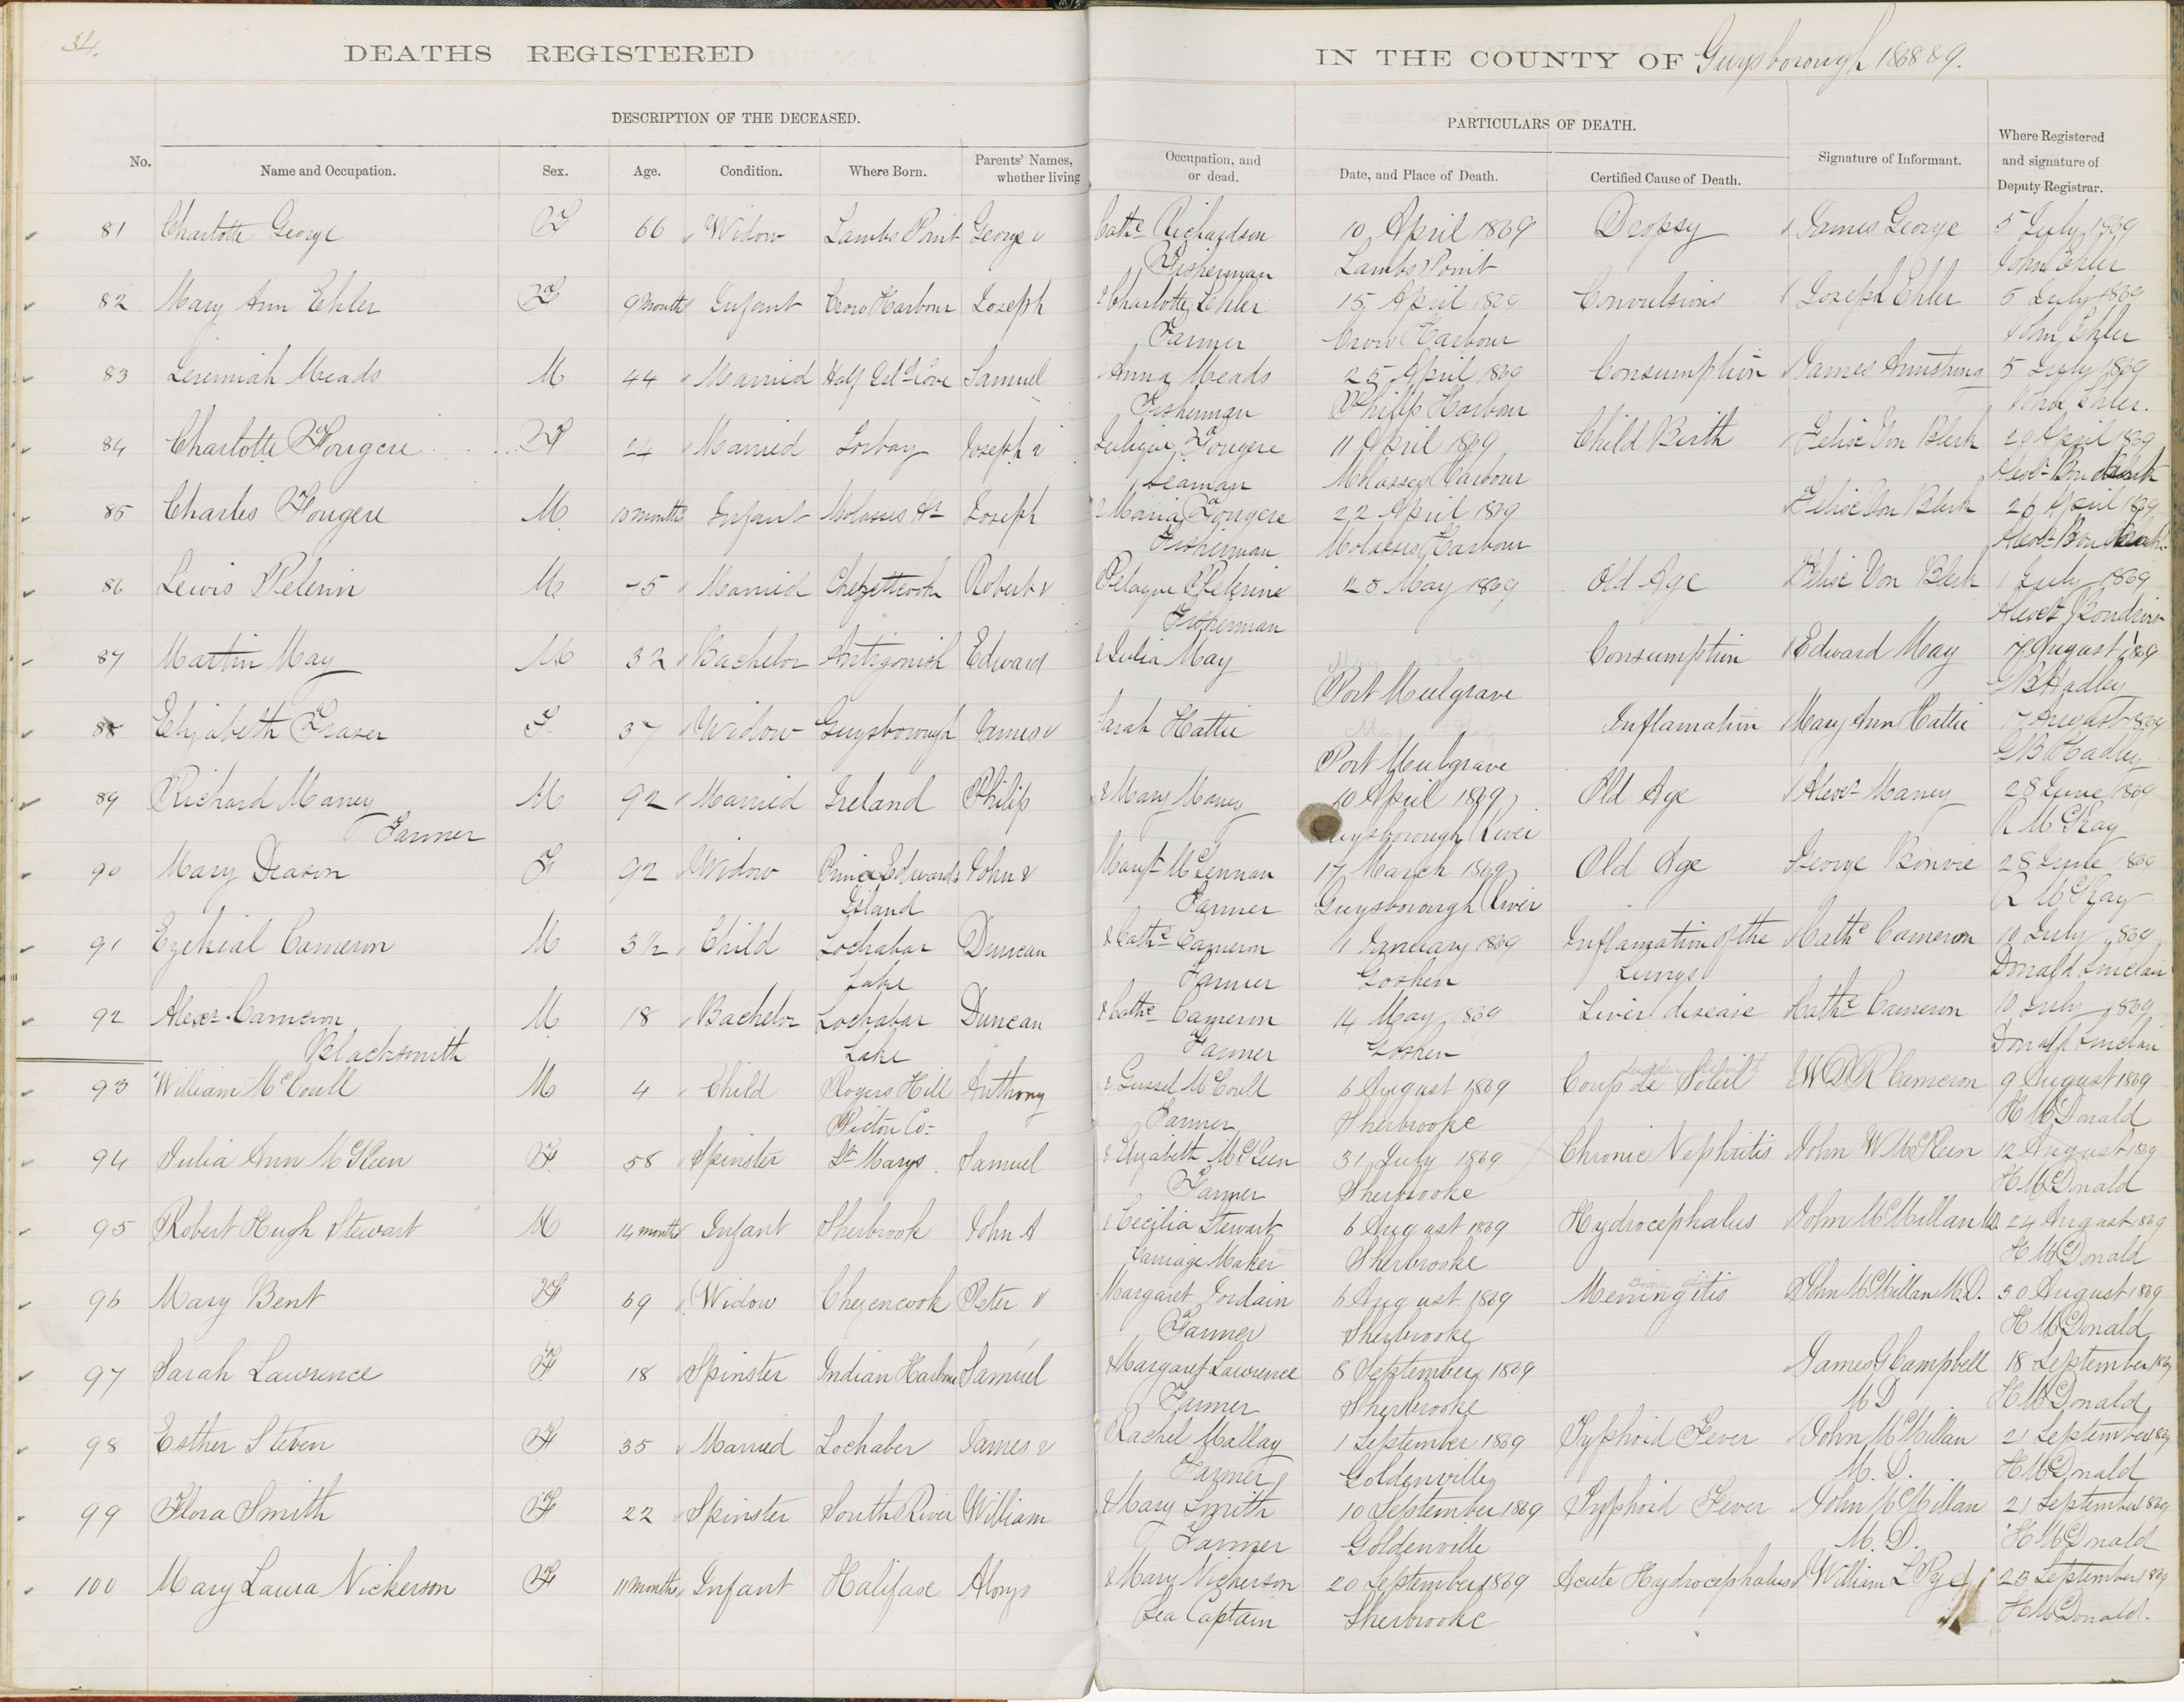 34.
DEATHS REGISTERED IN THE COUNTY OF Guysborough 1868 & 9.
DESCRIPTION OF THE DECEASED. PARTICULARS OF DEATH.
No. Name and Occupation. Sex. Age. Condition. Where Born. Parents' Names, whether living Occupation, and or dead. Date, and Place of Death. Certified Cause of Death. Signature of Informant. Where Registered and signature of Deputy Registrar.
81 Charlotte George F 66 Widow Lambs Point George & Cathe Richardson 10 April 1869 Dropsy James George 5 July 1869
Fisherman Lambs Point John Ehler
82 Mary Ann Ehler F 9 months Infant Crow Harbour Joseph & Charlotte Ehler 15 April 1869 Convulsions Joseph Ehler 5 July 1869
Farmer Crow Harbour John Ehler
83 Jeremiah Meads M 44 Married Half Isld Cove Samuel Anna Meads 25 April 1869 Consumption James Armstrong 5 July 1869
Fisherman Philip Harbour John Ehler.
84 Charlotte Fougere F 24 Married Torbay Joseph & Fougere 11 April 1869 Child Birth Felix Von Blerk 20 April 1869
Seaman Molasses Harbour Alexr
85 Charles Fougere M 10 months Infant Molasses Hr Joseph & Maria Fougere 22 April 1869 Felix Von Blerk 26 April 1869
Fisherman Molasses Harbour Alexr
86 Lewis Pelerin M 75 Married Chezettcook Robert & Pelagie Pelerine 28 May 1869 Old Age Felix Von Blerk 1 July 1869
Fisherman Alexr
87 Martin May M 32 Bachelor Antigonish Edward & Julia May Consumption Edward May 17 August 1869
Port Mulgrave GB Hadley
88 Elizabeth Frazer F 37 Widow Guysborough James & Sarah Hattie Inflamation Mary Ann Hattie 17 August 1869
Port Mulgrave GB Hadley
89 Richard Maney M 92 Married Ireland Philip & Mary Maney 10 April 1869 Old Age Alexr Maney 28 June 1869
Farmer Guysborough River R McKay
90 Mary Deason F 92 Widow Prince Edwards John & Margt McLennan 17 March 1869 Old Age George Bonvie 28 June 1869
Island Farmer Guysborough River R McKay
91 Ezekial Cameron M 3½ Child Lochabar Duncan & Cathe Cameron 11 January 1869 Inflamation of the Cathe Cameron 10 July 1869
Lake Farmer Goshen Lungs Donald Sinclair
92 Alexr Cameron M 18 Bachelor Lochabar Duncan & Cathe Cameron 14 May 1869 Liver disease Cathe Cameron 10 July 1869
Blacksmith Lake Farmer Goshen Donald Sinclair
93 William McCoull M 4 Child Rogers Hill Anthony & McCoull 6 August 1869 Coup de Soleil W D R Cameron 9 August 1869
Picton Co= Farmer Sherbrooke H McDonald
94 Julia Ann McKeen F 58 Spinster St Marys. Samuel & Elizabeth McKeen 31 July 1869 Chronic Nephritis John W McKeen 12 August 1869
Farmer Sherbrooke H McDonald
95 Robert Hugh Stewart M 14 months Infant Sherbrook John A & Cecilia Stewart 6 August 1869 Hydrocephalus John McMillan M.D. 24 August 1869
Carriage Maker Sherbrooke H McDonald
96 Mary Bent F 69 Widow Chezencook Peter & Margaret Jordain 6 August 1869 Meningitis John McMillan M.D. 30 August 1869
Farmer Sherbrooke H McDonald
97 Sarah Lawrence F 18 Spinster Indian Harbour Samuel & Margaret Lawrence 8 September 1869 James G Campbell 18 September 1869
Farmer Sherbrooke MD H McDonald
98 Esther Steven F 35 Married Lochaber James & Rachel Mallay 1 September 1869 Typhoid Fever John McMillan 21 September 1869
Farmer Goldenville M.D. H McDonald
99 Flora Smith F 22 Spinster South River William & Mary Smith 10 September 1869 Typhoid Fever John McMillan 21 September 1869
Farmer Goldenville M.D. H McDonald
100 Mary Laura Nickerson F 11 months Infant Halifax Alonzo & Mary Nickerson 20 September 1869 Acute Hydrocephalus William L 23 September 1869
Sea Captain Sherbrooke H McDonald.